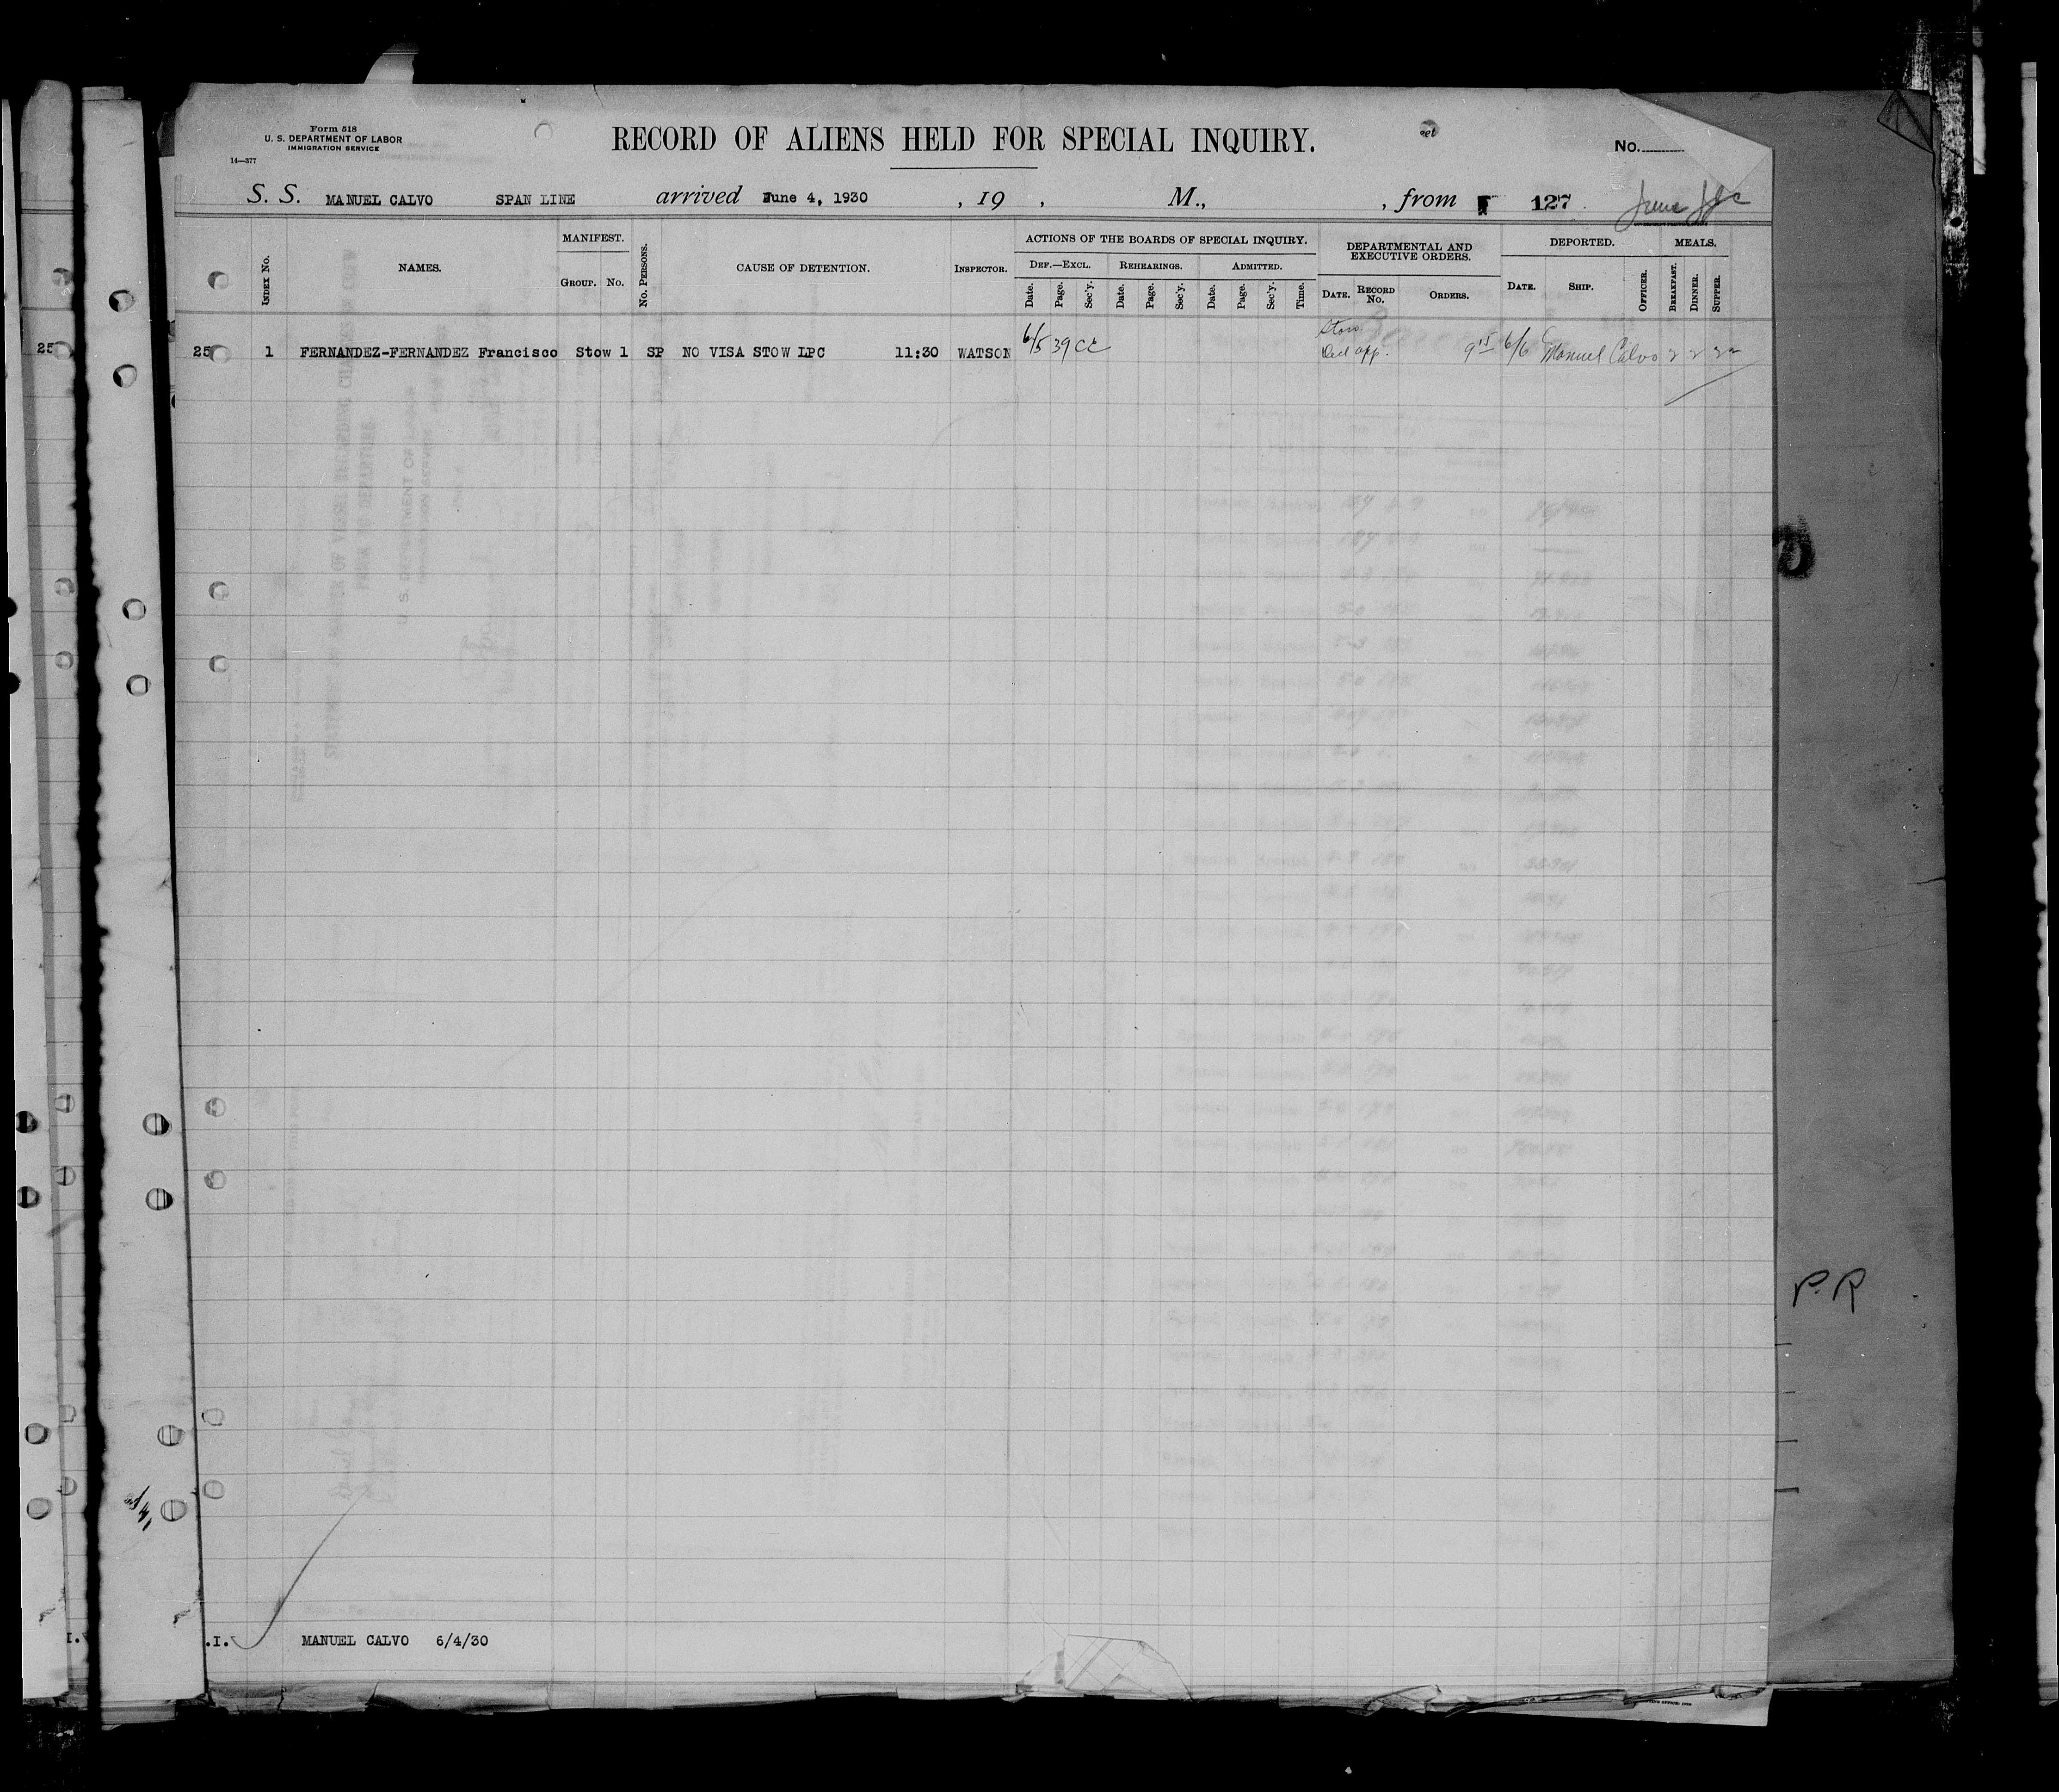 Form 518
U. S. DEPARTMENT OF LABOR
IMMIGRATION SERVICE
14—377
RECORD OF ALIENS HELD FOR SPECIAL INQUIRY.
eet
No.
S. S. MANUEL CALVO SPAN LINE arrived June 4, 1930 , 19 , M., , from 127 June
INDEX No.
NAMES.
MANIFEST.
GROUP. No.
No. PERSONS.
CAUSE OF DETENTION.
INSPECTOR.
ACTIONS OF THE BOARDS OF SPECIAL INQUIRY.
DEF.—EXCL. REHEARINGS. ADMITTED.
Date. Page. Sec'y. Date. Page. Sec'y. Date. Page. Sec'y. Time.
DEPARTMENTAL AND
EXECUTIVE ORDERS.
DATE. RECORD No. ORDERS.
DEPORTED.
DATE. SHIP. OFFICER.
MEALS.
BREAKFAST. DINNER. SUPPER.
25
25 1 FERNANDEZ-FERNANDEZ Francisco Stow 1 SP NO VISA STOW LPC 11:30 WATSON 6/5 39 CC Stow
app. 9 15 6/6 Manuel Calvo 2 2 2
P.R
I.
.I. MANUEL CALVO 6/4/30